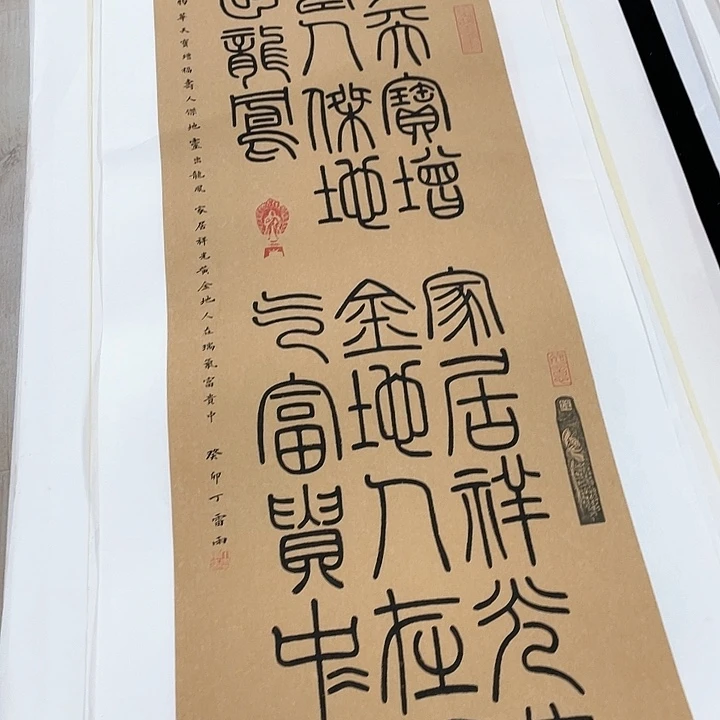 天寶增
人傑地
出龍鳳
家居祥光
金地人在
气富貴中
物華天寶增福壽人傑地靈出龍鳳 家居祥光黃金地人在瑞氣富貴中 癸卯丁雷雨